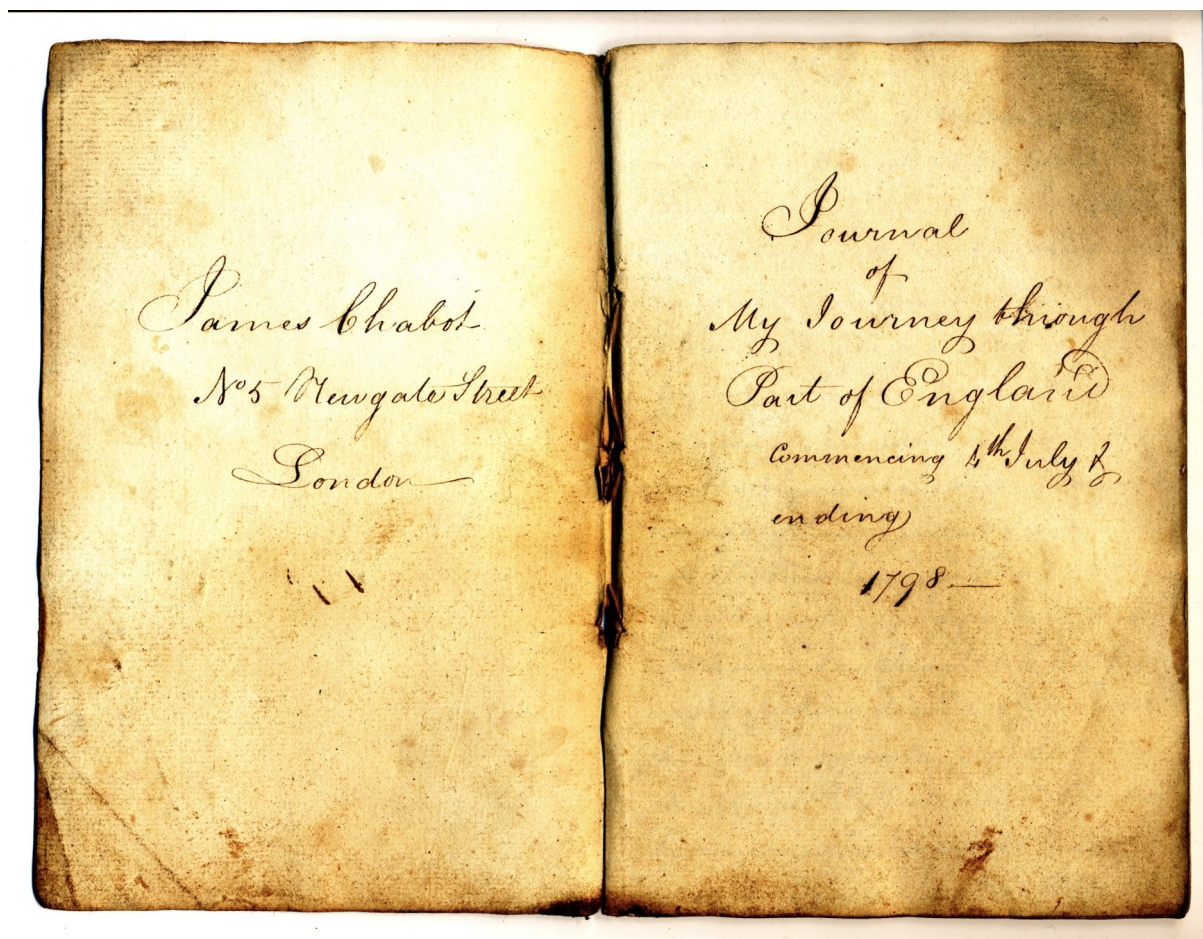 James Chabot
No 5 Newgate Street
London
Journal
of
My Journey through
Part of England
Commencing 4th July &
ending
1798 —